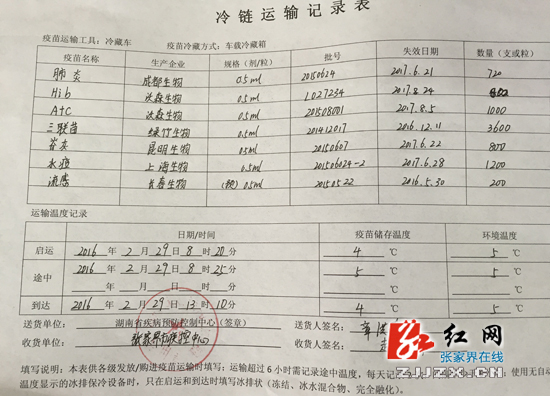 冷链运输记录表
疫苗运输工具：冷藏车 疫苗冷藏方式：车载冷藏箱
疫苗名称 生产企业 规格（剂/粒） 批号 失效日期 数量（支或粒）
肺炎 成都生物 0.5ml 20150624 2017.6.21 720
Hib 沃森生物 0.5ml 1027234 2017.8.24
A+C 沃森生物 0.5ml 201508001 2017.8.5 1000
三联苗 绿竹生物 0.5ml 201412017 2016.12.11 3600
昆明生物 0.5ml 20150607 2017.6.22 800
水痘 上海生物 0.5ml 201506024-2 2017.6.28 1200
流感 长春生物 0.5ml 20150522 2016.5.30 200
运输温度记录
日期/时间 疫苗储存温度 环境温度
启运 2016 年 2 月 29 日 8 时 20 分 4 ℃ 5 ℃
途中 2016 年 2 月 29 日 8 时 25 分 5 ℃ 5 ℃
年 月 日 时 分 ℃ ℃
到达 2016 年 2 月 29 日 13 时 10 分 4 ℃ 5 ℃
送货单位： 湖南省疾病预防控制中心（签章） 送货人签名：
收货单位： 张家界市疾控中心 收货人签名：
填写说明：本表供各级发放/购进疫苗运输时填写；运输超过 6 小时需记录途中温度，每天记录
温度显示的冰排保冷设备时，只在启运和到达时填写冰排状（冻结、冰水混合物、完全融化）。
红网
张家界在线
ZJJZX.CN